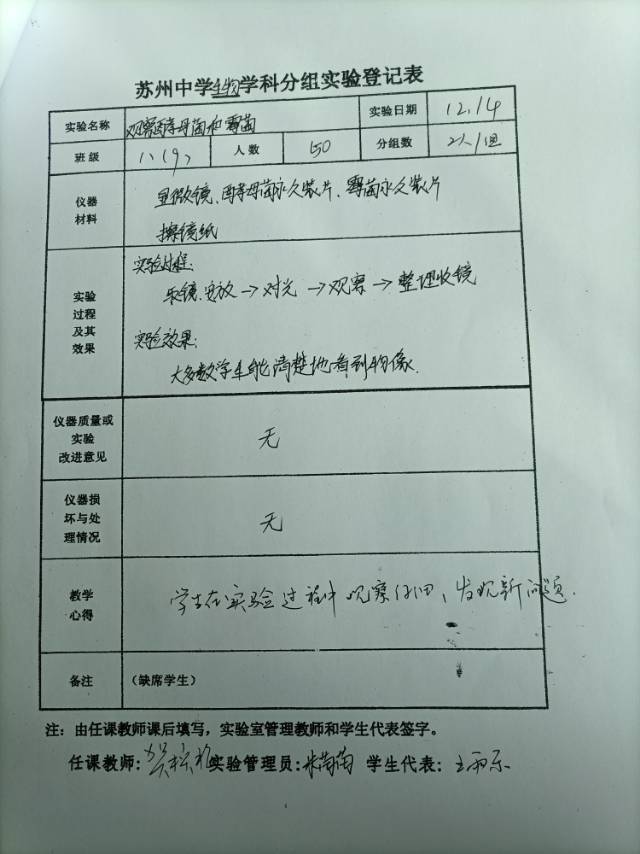 苏州中学生物学科分组实验登记表
实验名称 观察酵母菌和霉菌 实验日期 12.14
班级 八(9) 人数 50 分组数 2人/组
仪器材料 显微镜、酵母菌永久装片、霉菌永久装片
擦镜纸
实验过程及其效果
实验过程:
取镜、安放→对光→观察→整理收镜
实验效果:
大多数学生能清楚地看到物像.
仪器质量或实验改进意见 无
仪器损坏与处理情况 无
教学心得 学生在实验过程中观察仔细、发现新问题.
备注 (缺席学生)
注:由任课教师课后填写,实验室管理教师和学生代表签字。
任课教师: 实验管理员: 学生代表: